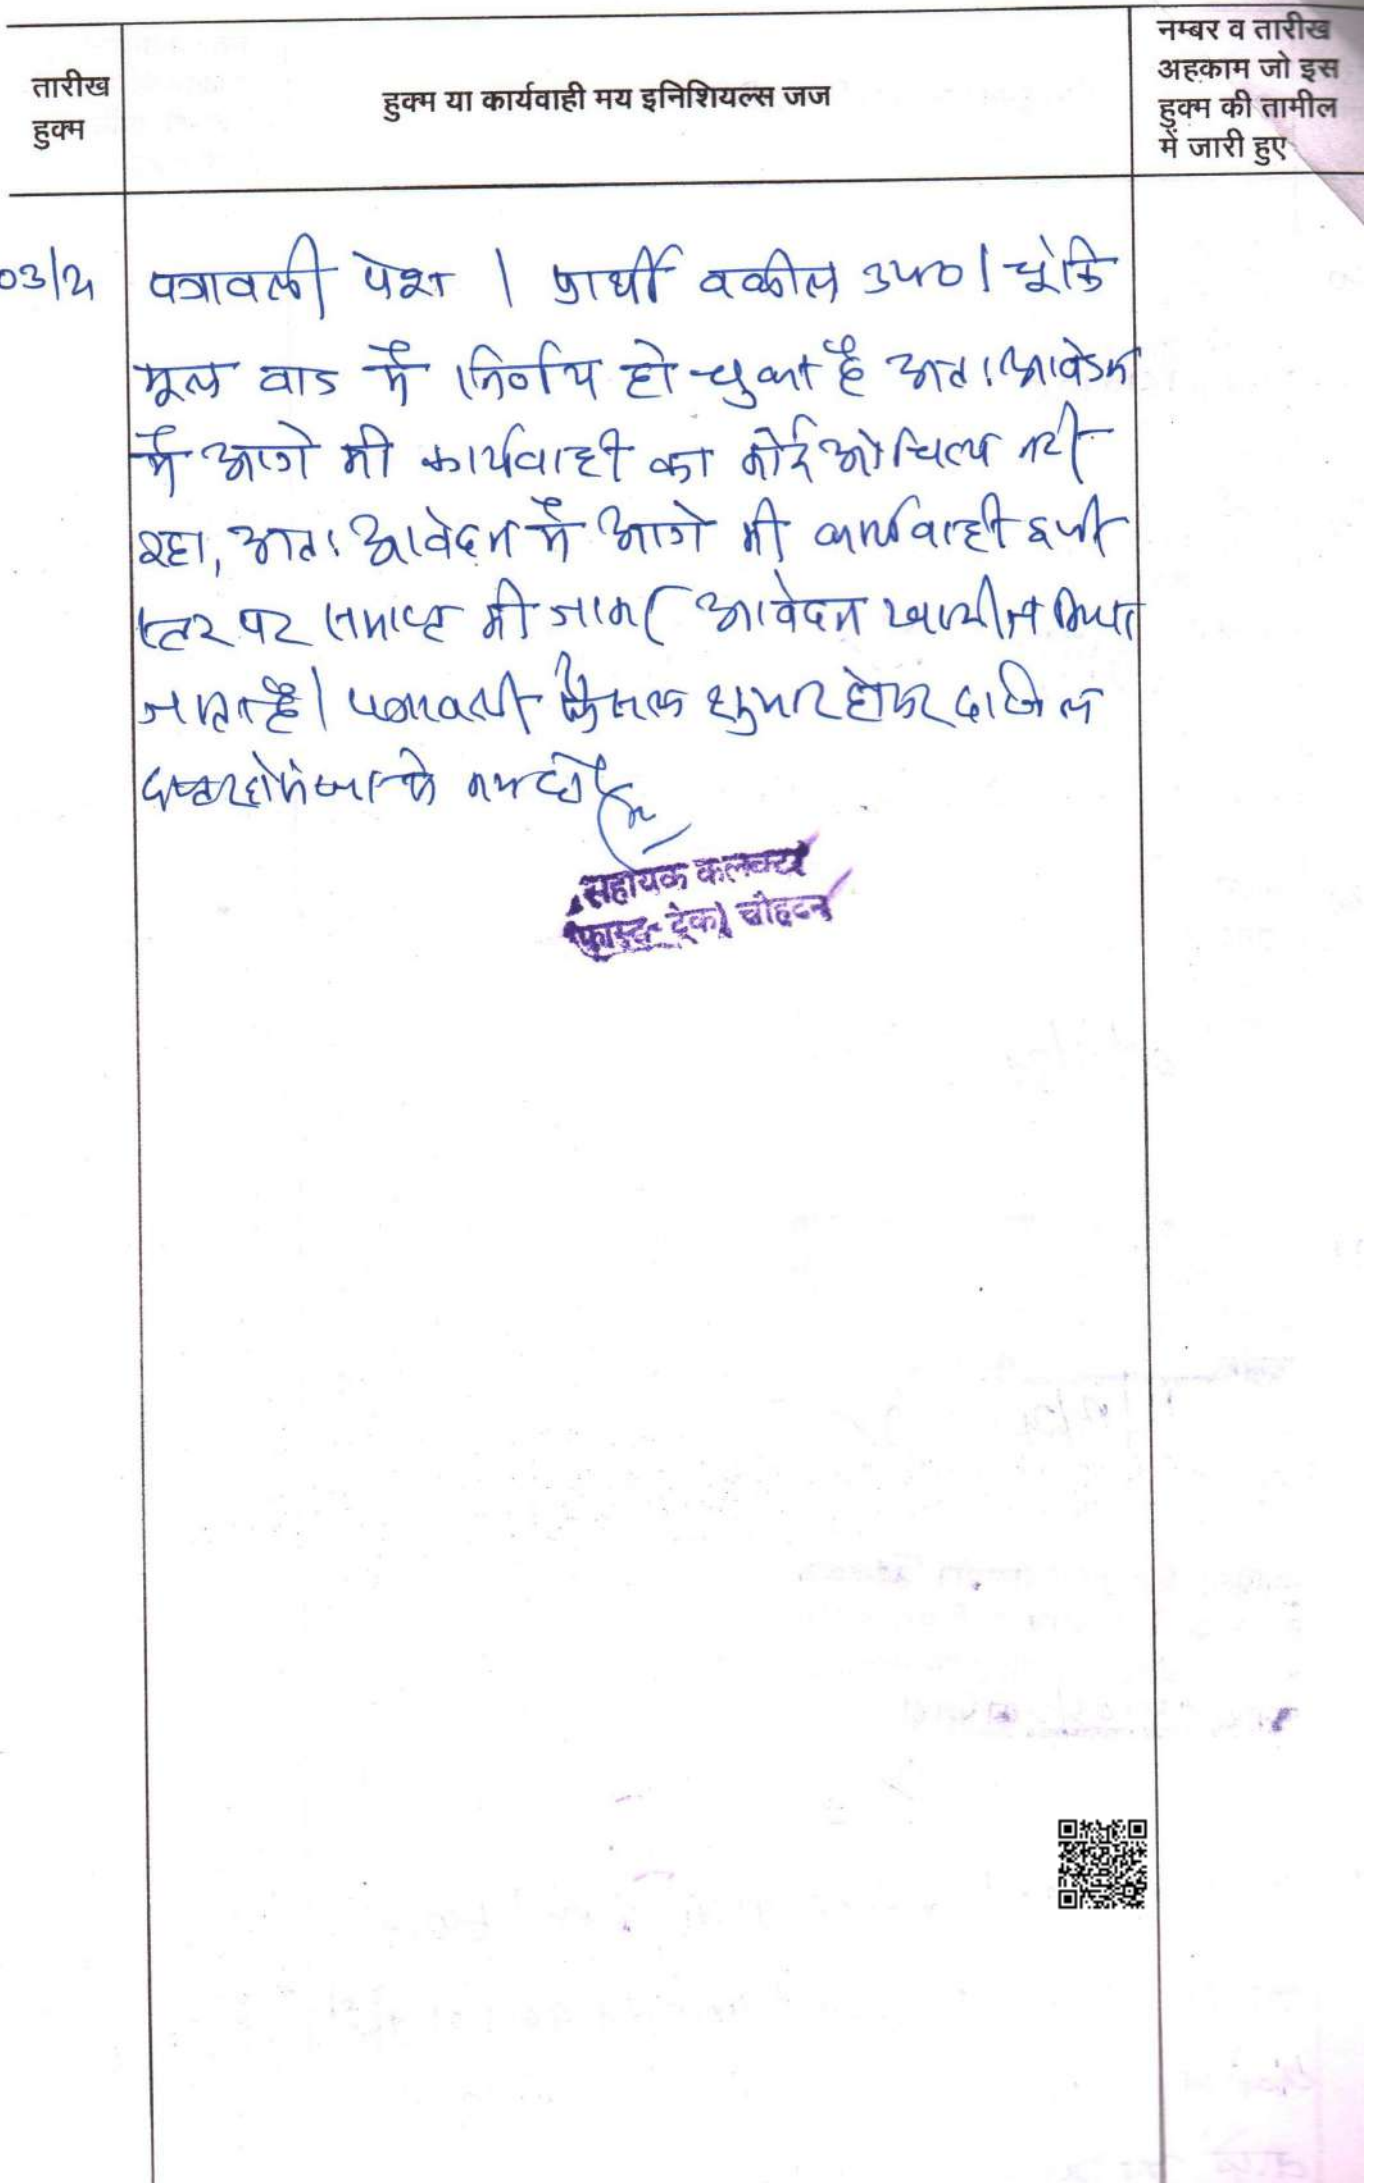 तारीख
हुक्म
हुक्म या कार्यवाही मय इनिशियल्स जज
नम्बर व तारीख
अहकाम जो इस
हुक्म की तामील
में जारी हुए
03/21 पत्रावली पेश । प्रार्थी वकील उप० । चूंकि
मूल वाद में निर्णय हो चुका है अतः आवेदन
में आगे की कार्यवाही का कोई औचित्य नही
रहा, अतः आवेदन में आगे की कार्यवाही इसी
स्तर पर समाप्त की जाकर आवेदन खारीज किया
जाता है । पत्रावली फैसल शुमार होकर दाखिल
दफ्तर हो
सहायक कलक्टर
(फास्ट-ट्रेक) चौहटन